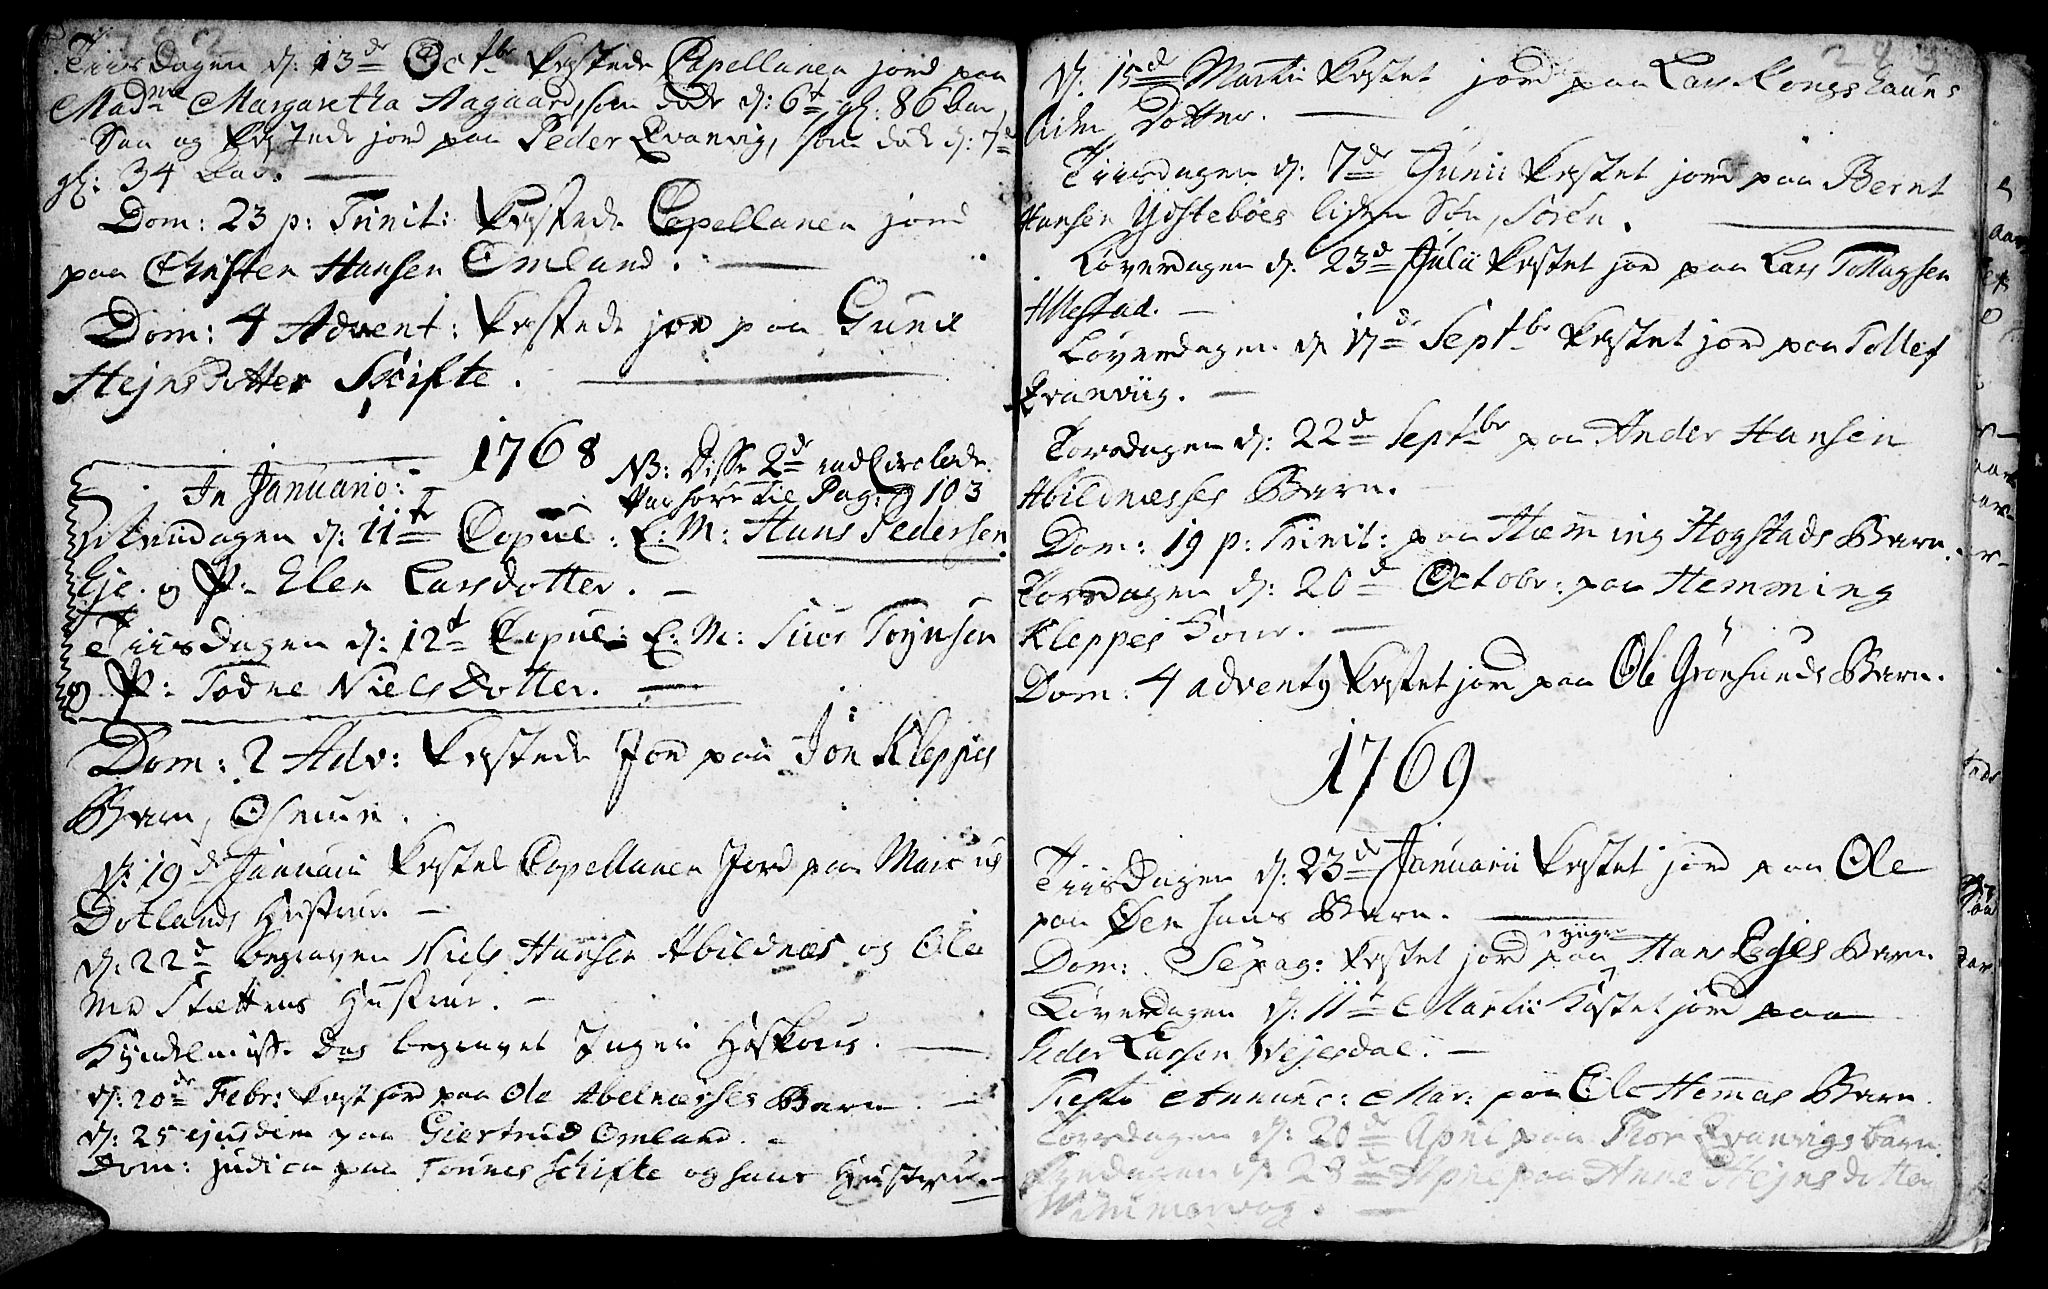 Tiisdagen d: 13de Octbr kastede Capellanen jord paa
Madme Margaretha Aagaard, som døde d: 6t, gl: 86 aar
Saa og kastede jord paa Peder Qvanvig, som døde d: 7de
gl: 34 aar.
Dom: 23 p: Trinit: kastede Capellanen jord
paa Christen Hansen Omland.
Dom: 4 Advent: kastede jord paa Guni
Hejnsdotter Skifte.
1768
NB: Disse 2de
In Januario:
hører til Pag: 103
d: 11te Copul: E: M: Hans Pedersen
Eje og P: Elen Larsdotter.
Tiisdagen d: 12t Copul: E: M: Siur Tojnsen
og P: Todne Nielsdotter.
Dom: 2 Adv: kastede Jord paa Jon Kleppes
Barn, Osmun.
d: 19de Januarii kastet Capellanen Jord paa Marcus
Dotlands Hustrue
d: 22d begraven Niels Hansen Abildnæs og Ole
Stættens Hustrue.
Kyndelmisse Dag begravet Inger
d: 20de Febr: kast jord paa Ole Abelnæsses Barn.
d: 25 ejusdem paa Giertrud Omland.
Dom: judica paa Tønnes Schifte og hans Hustrue.
d. 15d Martii kastet jord paa Lars Kongshauns
liden Dotter.
Tiisdagen d: 7de Junii kastet jord paa Bernt
Hansen Ydstebøes liden Søn, Sørén.
Løverdagen d: 23d Julii kastet jord paa Lars Tollagsen
Allestad.
Løverdagen d 17de Septbr kastet jord paa Tollef
Qvanviig.
Torsdagen d: 22d Septbr paa Ander Hansen
Abildnæsses Barn.
Dom: 19 p: Trinit: paa Hæmming Hogstads Barn.
Torsdagen d: 20d Octobr: paa Hemming
Kleppes
Dom: 4 advent kastet jord paa Ole Grønsunds Barn.
1769
Tiisdagen d: 23de Januarii kastet jord paa Ole
paa Øen hans Barn.
Dom: Sexag: kastet jord paa Hans Ejes Barn
Løverdagen d: 11t Martii kastet jord paa
Peder Larsen Vejesdal.
Festo Annunc: Mar: paa Ole Hemmas Barn.
Torsdagen d: 20de April paa Thor Qvanvigs barn.
d: 23de April paa Anne Hejnsdotter